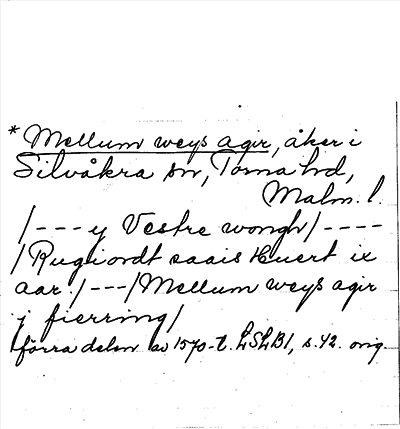 * Mellum weys agir, åker i
Silvåkra sn, Torna hd,
Malm. l.
/--- y Vestre wongh/----
/Rugiordt saais Huert ix
aar./---/Mellum weys agir
j fierring/
förra delen av 1570-t. LSLB1, s. 42. orig.